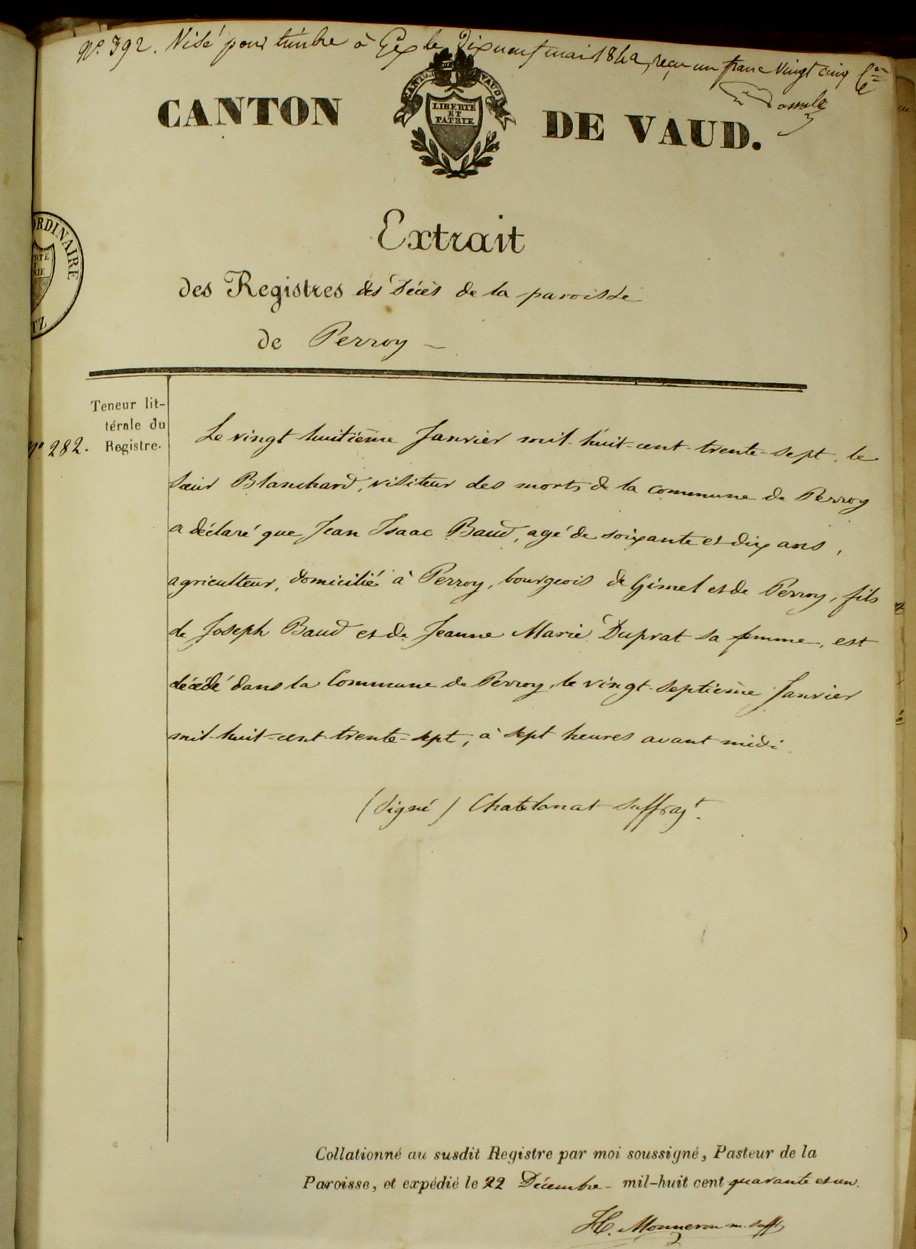 N.º 392. Visé pour timbre à Gex le Dixneuf mai 1842, reçu un franc Vingt cinq
CANTON DE VAUD
LIBERTÉ
ET
PATRIE
CANTON DE VAUD.
ORDINAIRE
TZ
Extrait
des Registres des Décès de la paroisse
de Perroy –
Teneur lit-
térale du
Registre.
Nº 282.
Le vingt huitième Janvier mil-huit-cent-trente-sept, le
Sieur Blanchard, visiteur des morts de la commune de Perroy
a déclaré que Jean Isaac Baud, agé de soixante et dix ans,
agriculteur, domicilié à Perroy, bourgeois de Gimel et de Perroy, fils
de Joseph Baud et de Jeanne Marie Duprat sa femme, est
décédé dans la Commune de Perroy, le vingt-septième Janvier
mil-huit-cent-trente-sept, à sept heures avant midi.
(Signé) Chatelanat suffragt.
Collationné au susdit Registre par moi soussigné, Pasteur de la
Paroisse, et expédié le 22 Décembre - mil-huit cent quarante et un.
H. Monneron m. suffg